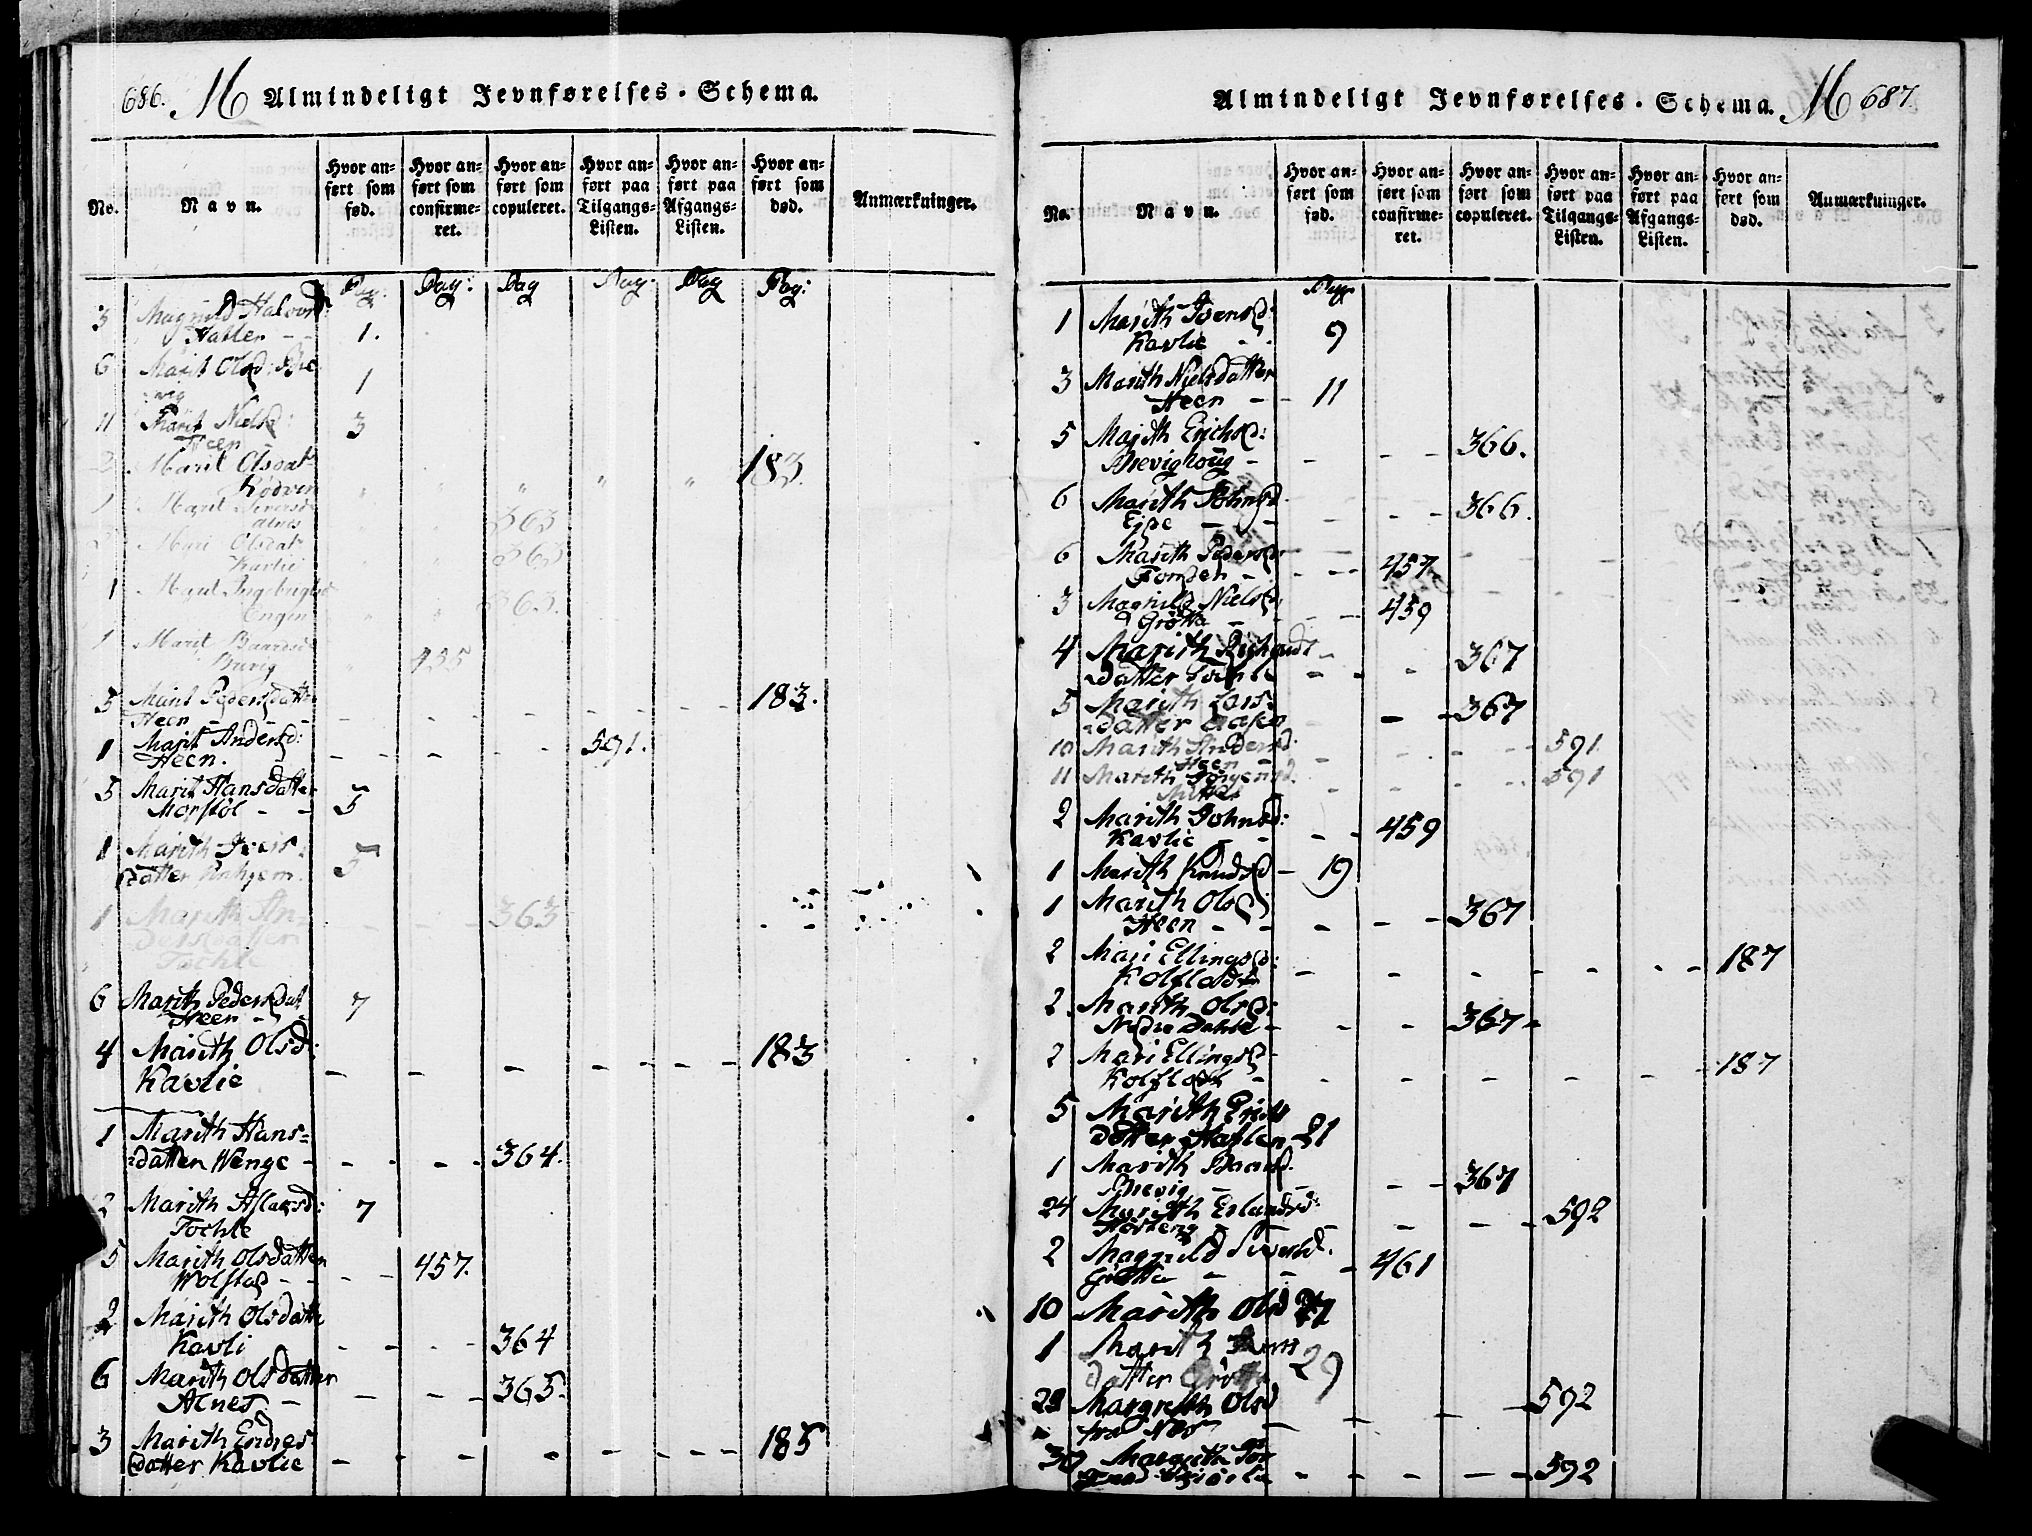 686. M Almindeligt Jevnførelses-Schema.
No. Navn. Hvor anført som fød. Hvor anført som confirmeret. Hvor anført som copuleret. Hvor anført paa Tilgangs-Listen. Hvor anført paa Afgangs-Listen. Hvor anført som død. Anmærkninger.
Pag: Pag: Pag Pag: Pag Pag:
3 Magnild Halvorsd:
Haflen - - 1.
6 Marit Olsd: Bre
:vig 1
11 Marit Nielsd: 3
Heen
2 Marit Olsdat 183.
Rødven
1 Marit Siversd
Alnes 363
Mari Olsdat 363
Kavlie
1 Marit Ingebrigtsd 363.
Engen
1 Marit Baardsd
Brevig 455
5 Marit Pedersdatter 183.
Heen
1 Marit Andersd: 591.
Heen.
5 Marit Hansdatter
Morstøl - - 5
1 Marith Ivers:
datter 5
1 Marith An= 363
dersdatter
Tochle
6 Marith Pedersdat 7
Heen
4 Marith Olsd: 183
Kavlie
1 Marith Hans=
datter Wenge - 364.
2 Marith Aslaksd: 7
Tochle
5 Marith Olsdatter
Wolstad - - 457.
2 Marith Olsdatte
Kavli 364
6 Marith Olsdatter
Alnes - 365.
3 Marith Endres 185
datter Kavlie
Almindeligt Jevnførelses-Schema. M 687.
No. Navn. Hvor anført som fød. Hvor anført som confirmeret. Hvor anført som copuleret. Hvor anført paa Tilgangs-Listen. Hvor anført paa Afgangs-Listen. Hvor anført som død. Anmærkninger.
Pag
1 Marith Iversd:
Kavlie 9
3 Marith Nielsdatter
Heen - - 11
5 Marith Erichsd: 366.
Brevighoug -
6 Marith Johnsd. 366.
Eje
6 Marith Pedersd: 457
3 Magnild Nielsd: 459
Grøtta
4 Marith
datter Tochle 367
5 Marith Lars:
datter Aasen 367
10 Marith Andersd. 591
Heen
11 Marith 591
2 Marith Johnsd: 459
Kavlie
1 Marith Knudsd - 19
1 Marith Olsd
Heen - 367
2 Mari Ellingsd: 187
Kolflodt
2. Marith Olsd:
Nedre Dahle - 367
2 Mari Ellingsd 187
Kolflodt
5 Marith Erics
datter Haflen 21
1 Marith Baard.
Brevig 367
24 Marith Erlandsd: 592
2 Magnild Siversd.
Grøtta 461
10 Marith Olsd 27
1 Marith
datter Grøtta 29
Margreth Olsd 592
fra
30 Margrethe
592